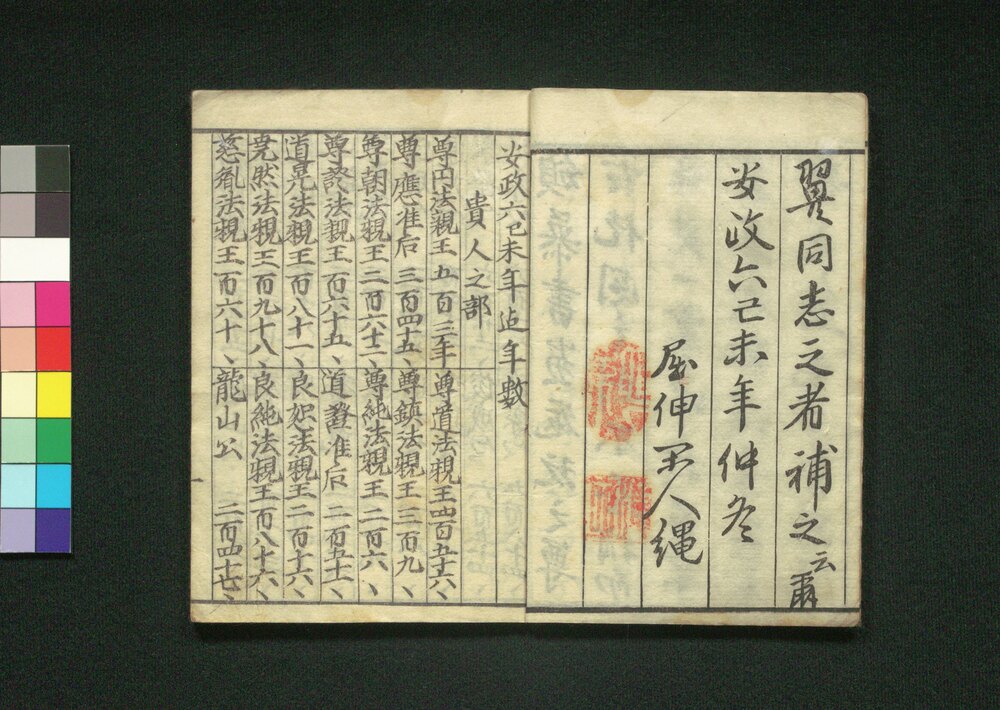 翼同志之者補之云爾
安政六己未年仲冬
屈伸不人縄
安政六己未年迠年數
貴人之部
尊円法親王 五百三年
尊道法親王 四百五十六、
尊應准后 三百四十五、
尊鎮法親王 三百九、
尊朝法親王 二百六十二、
尊純法親王 二百六、
尊證法親王 百六十五、
道證准后 二百五十一、
道晃法親王 百八十一、
良恕法親王 二百十六、
尭然法親王 百九十八、
良純法親王 百八十六、
慈胤法親王 百六十、
龍山公 二百四十七、